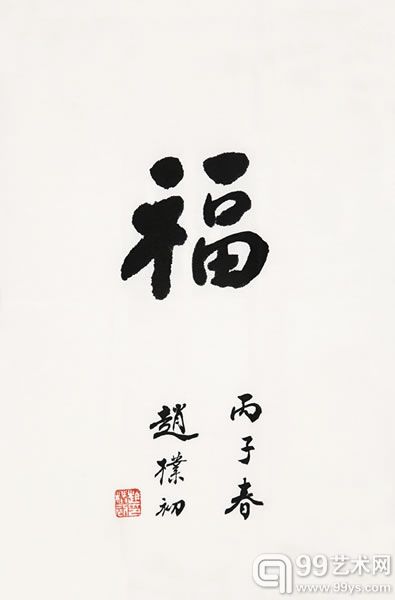 福
丙子春
趙樸初
99艺术网
www.99ys.com